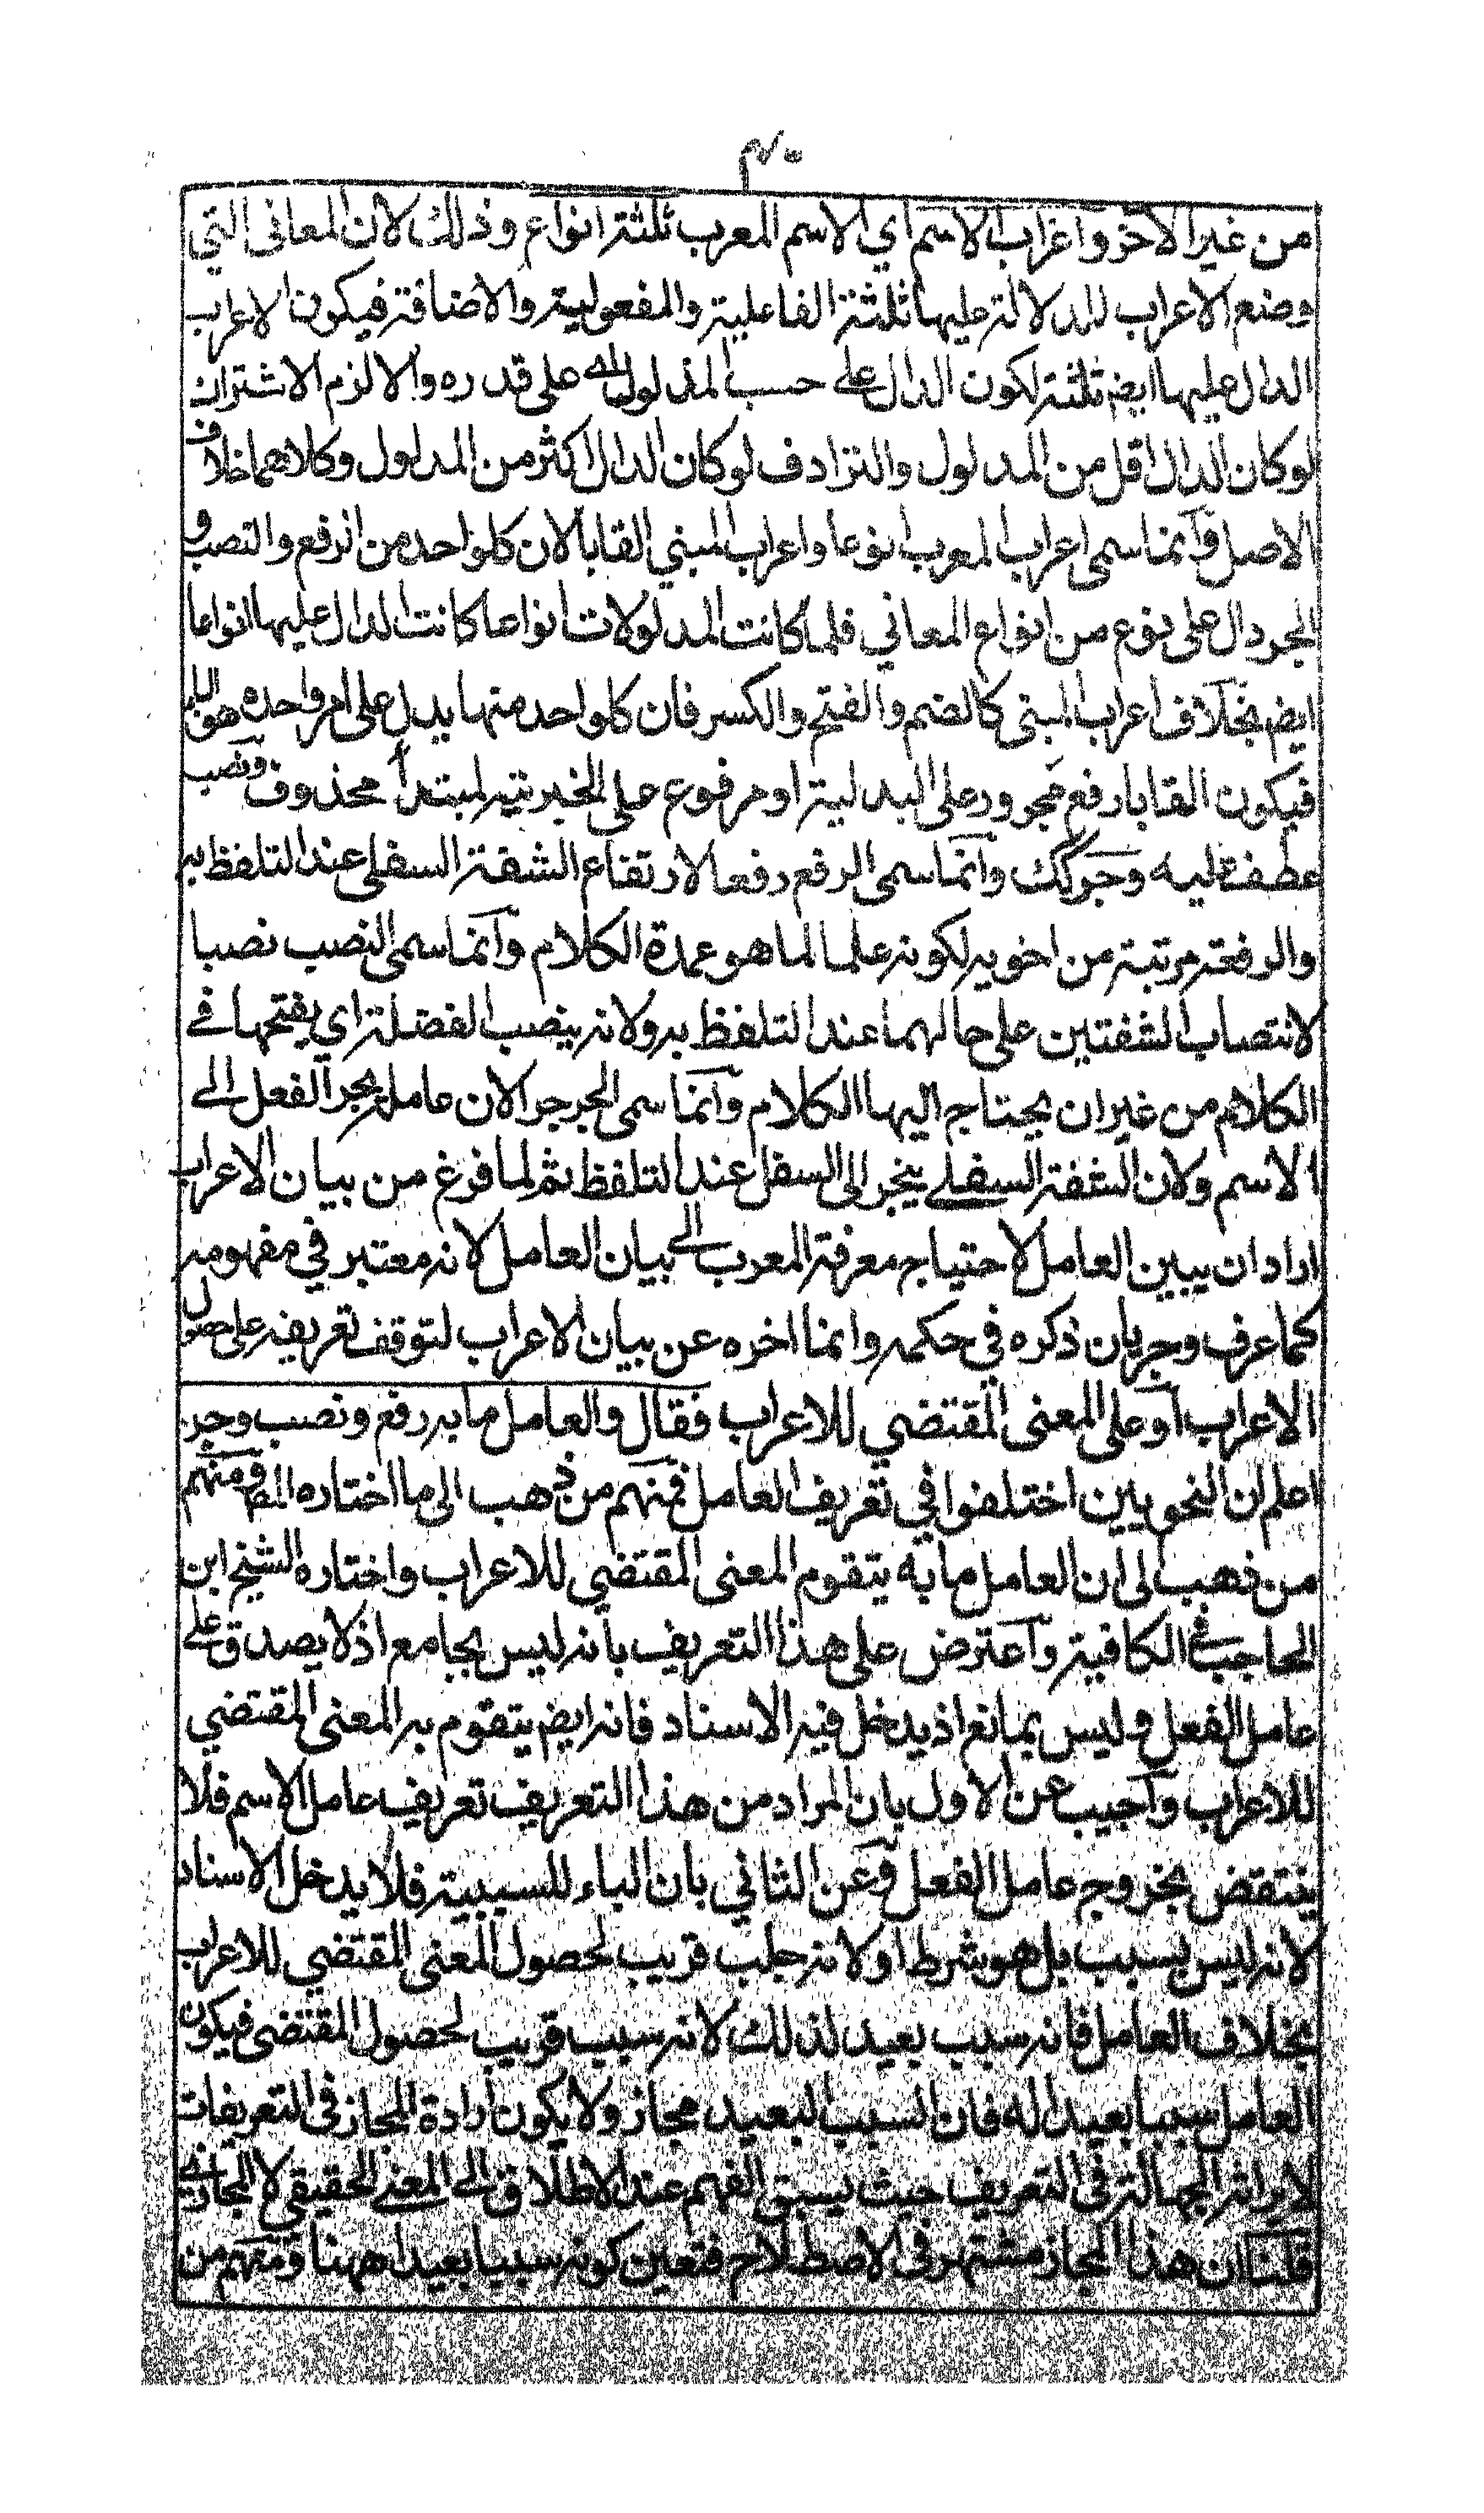 ٤٠
من غير الاخر واعراب الاسم اي الاسم المعرب ثلثة انواع وذلك لان المعاني التي
وضع الاعراب للدلالة عليها ثلثة الفاعلية والمفعولية والاضافة فيكون الاعراب
الدال عليها ايض ثلثة لكون الدال على حسب المدلول اي على قدره والا لزم الاشتراك
لو كان الدال اقل من المدلول والترادف لو كان الدال اكثر من المدلول وكلاهما خلاف
الاصل وانما سمى اعراب المعرب انوعا واعراب المبني القابا لان كلواحد من الرفع والنصب و
الجر دال على نوع من انواع المعاني فلما كانت المدلولات انواعا كانت الدال عليها انواعا
ايض بخلاف اعراب المبنى كالضم والفتح والكسر فان كلواحد منها يدل على امر واحد وهو البناء
فيكون القابا رفع مجرور على البدلية او مرفوع على الخبرية لمبتدأ محذوف ونصب
عطف عليه وجر كك وانما سمى الرفع رفعا لارتفاع الشفة السفلى عند التلفظ به
والرفعة مرتبة من اخويه لكونه علما لما هو عمدة الكلام وانما سمى النصب نصبا
لانتصاب الشفتين على حالهما عند التلفظ به ولانه ينصب الفضلة اي يفتحها في
الكلام من غير ان يحتاج اليها الكلام وانما سمى الجر جرا لان عامله يجر الفعل الى
الاسم ولان الشفة السفلى ينجر الى السفل عند التلفظ ثم لما فرغ من بيان الاعراب
اراد ان يبين العامل لاحتياج معرفة المعرب الى بيان العامل لانه معتبر في مفهومه
كما عرف وجريان ذكره في حكمه وانما اخره عن بيان الاعراب لتوقف تعريفه على حصول
الاعراب او على المعنى المقتضي للاعراب فقال والعامل ما به رفع ونصب وجر
اعلم ان النحويين اختلفوا في تعريف العامل فمنهم من ذهب الى ما اختاره المصـ ومنهم
من ذهب الى ان العامل ما به يتقوم المعنى المقتضي للاعراب واختاره الشيخ ابن
الحاجب في الكافية واعترض على هذا التعريف بانه ليس بجامع اذ لا يصدق على
عامل الفعل وليس بمانع اذ يدخل فيه الاسناد فانه ايض يتقوم به المعنى المقتضي
للاعراب واجيب عن الاول بان المراد من هذا التعريف تعريف عامل الاسم فلا
ينتقض بخروج عامل الفعل وعن الثاني بان الباء للسببية فلا يدخل الاسناد
لانه ليس بسبب بل هو شرط او لانه جلب قريب لحصول المعنى المقتضي للاعراب
بخلاف العامل فانه سبب بعيد لذلك لانه سبب قريب لحصول المقتضى فيكون
العامل سببا بعيدا له فان السبب البعيد مجاز ولا يكون ارادة المجاز في التعريفات
الجهالة في التعريف حيث يسبق الفهم عند الاطلاق الى المعنى الحقيقي لا المجازي
قلنا ان هذا المجاز مشتهر في الاصطلاح فتعين كونه سببا بعيدا ههنا ومنهم من